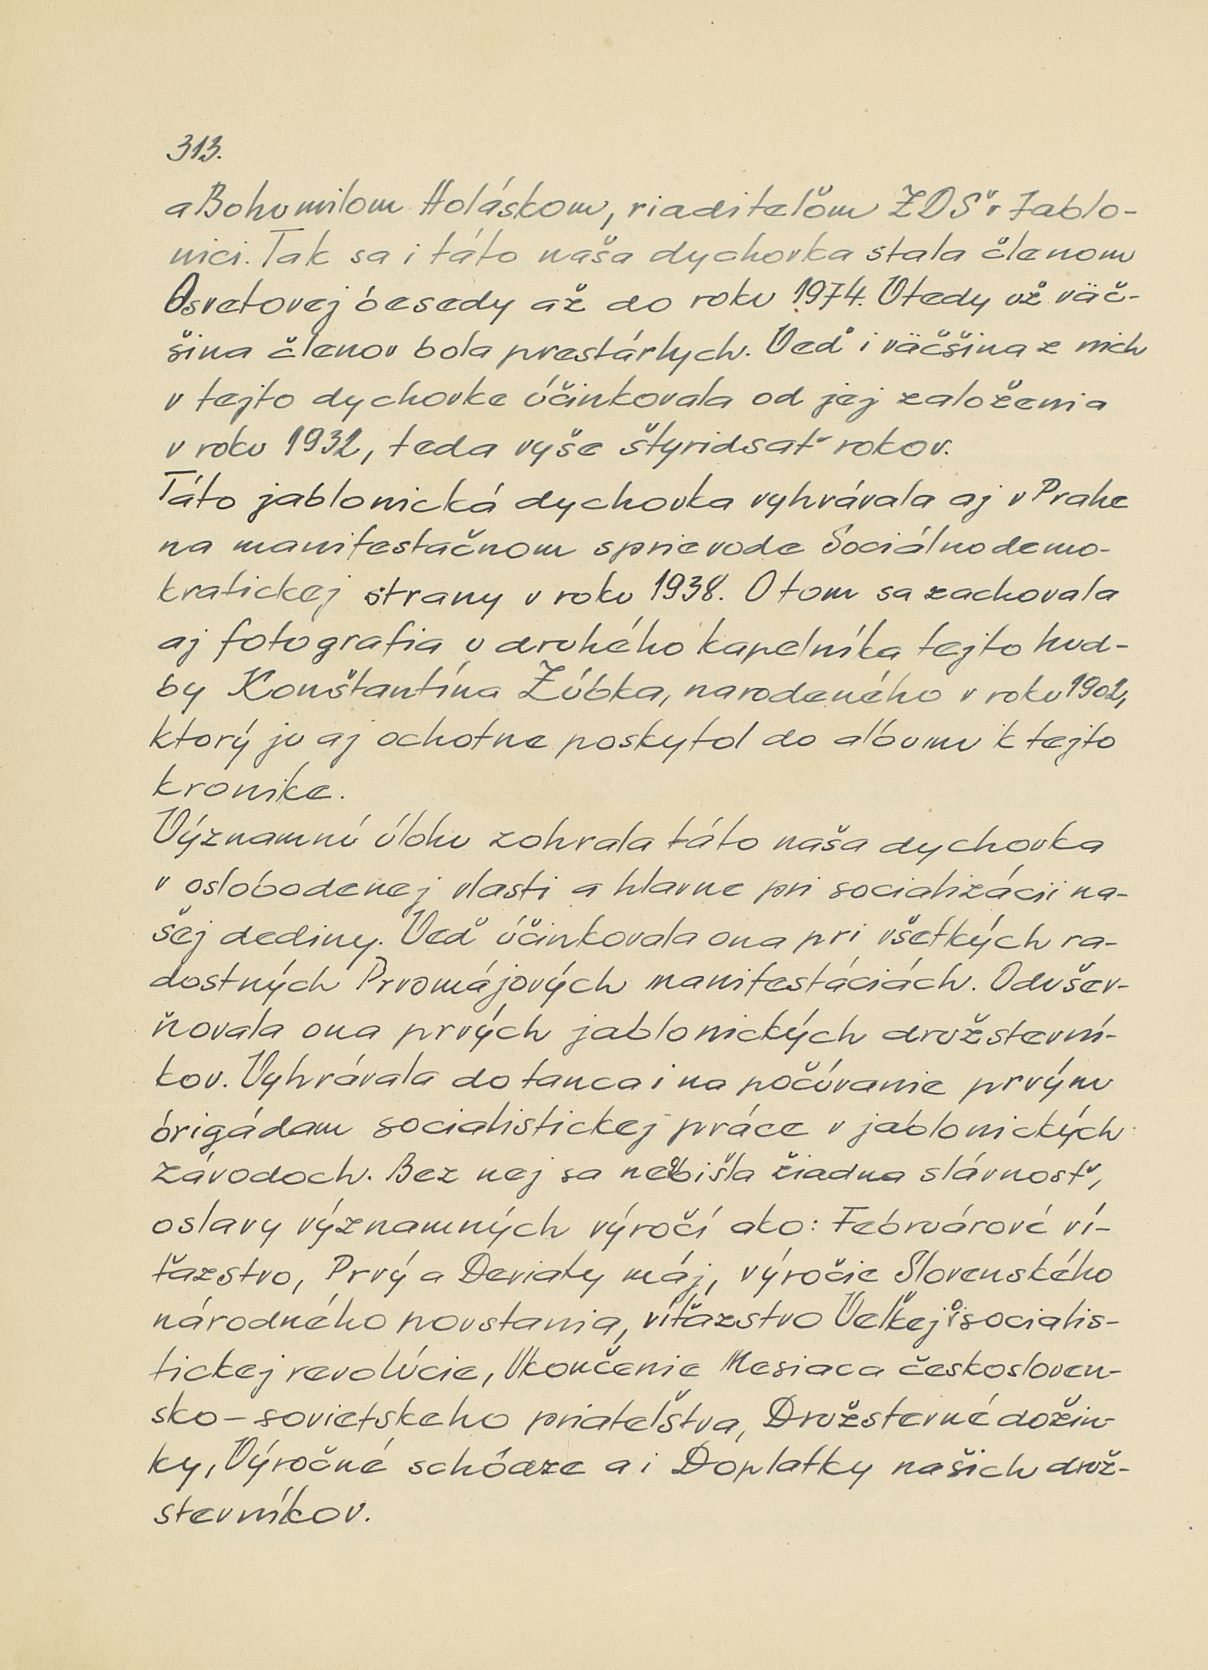 313.
a Bohumilom Holáskom, riaditeľom ZDŠ v Jablo-
nici. Tak sa i táto naša dychovka stala členom
Osvetovej besedy až do roku 1974. Vtedy už väč-
šina členov bola prestárlych. Veď i väčšina z nich
v tejto dychovke účinkovala od jej založenia
v roku 1932, teda vyše štyridsať rokov.
Táto jablonická dychovka vyhrávala aj v Prahe
na manifestačnom sprievode Sociálnodemo-
kratickej strany v roku 1938. O tom sa zachovala
aj fotografia u druhého kapelníka tejto hud-
by Konštantína Zúbka, narodeného v roku 1902,
ktorý ju aj ochotne poskytol do albumu k tejto
kronike.
Významnú úlohu zohrala táto naša dychovka
v oslobodenej vlasti a hlavne pri socializácii na-
šej dediny. Veď účinkovala ona pri všetkých ra-
dostných Prvomájových manifestáciách. Odušev-
ňovala ona prvých jablonických družstevní-
kov. Vyhrávala do tanca i na počúvanie prvým
brigádam socialistickej práce v jablonických
závodoch. Bez nej sa neobišla žiadna slávnosť,
oslavy významných výročí ako: Februárové ví-
ťazstvo, Prvý a Deviaty máj, výročie Slovenského
národného povstania, víťazstvo Veľkej socialis-
tickej revolúcie, Ukončenie Mesiaca českosloven-
sko-sovietskeho priateľstva, Družstevné dožin-
ky, Výročné schôdze a i Doplatky našich druž-
stevníkov.